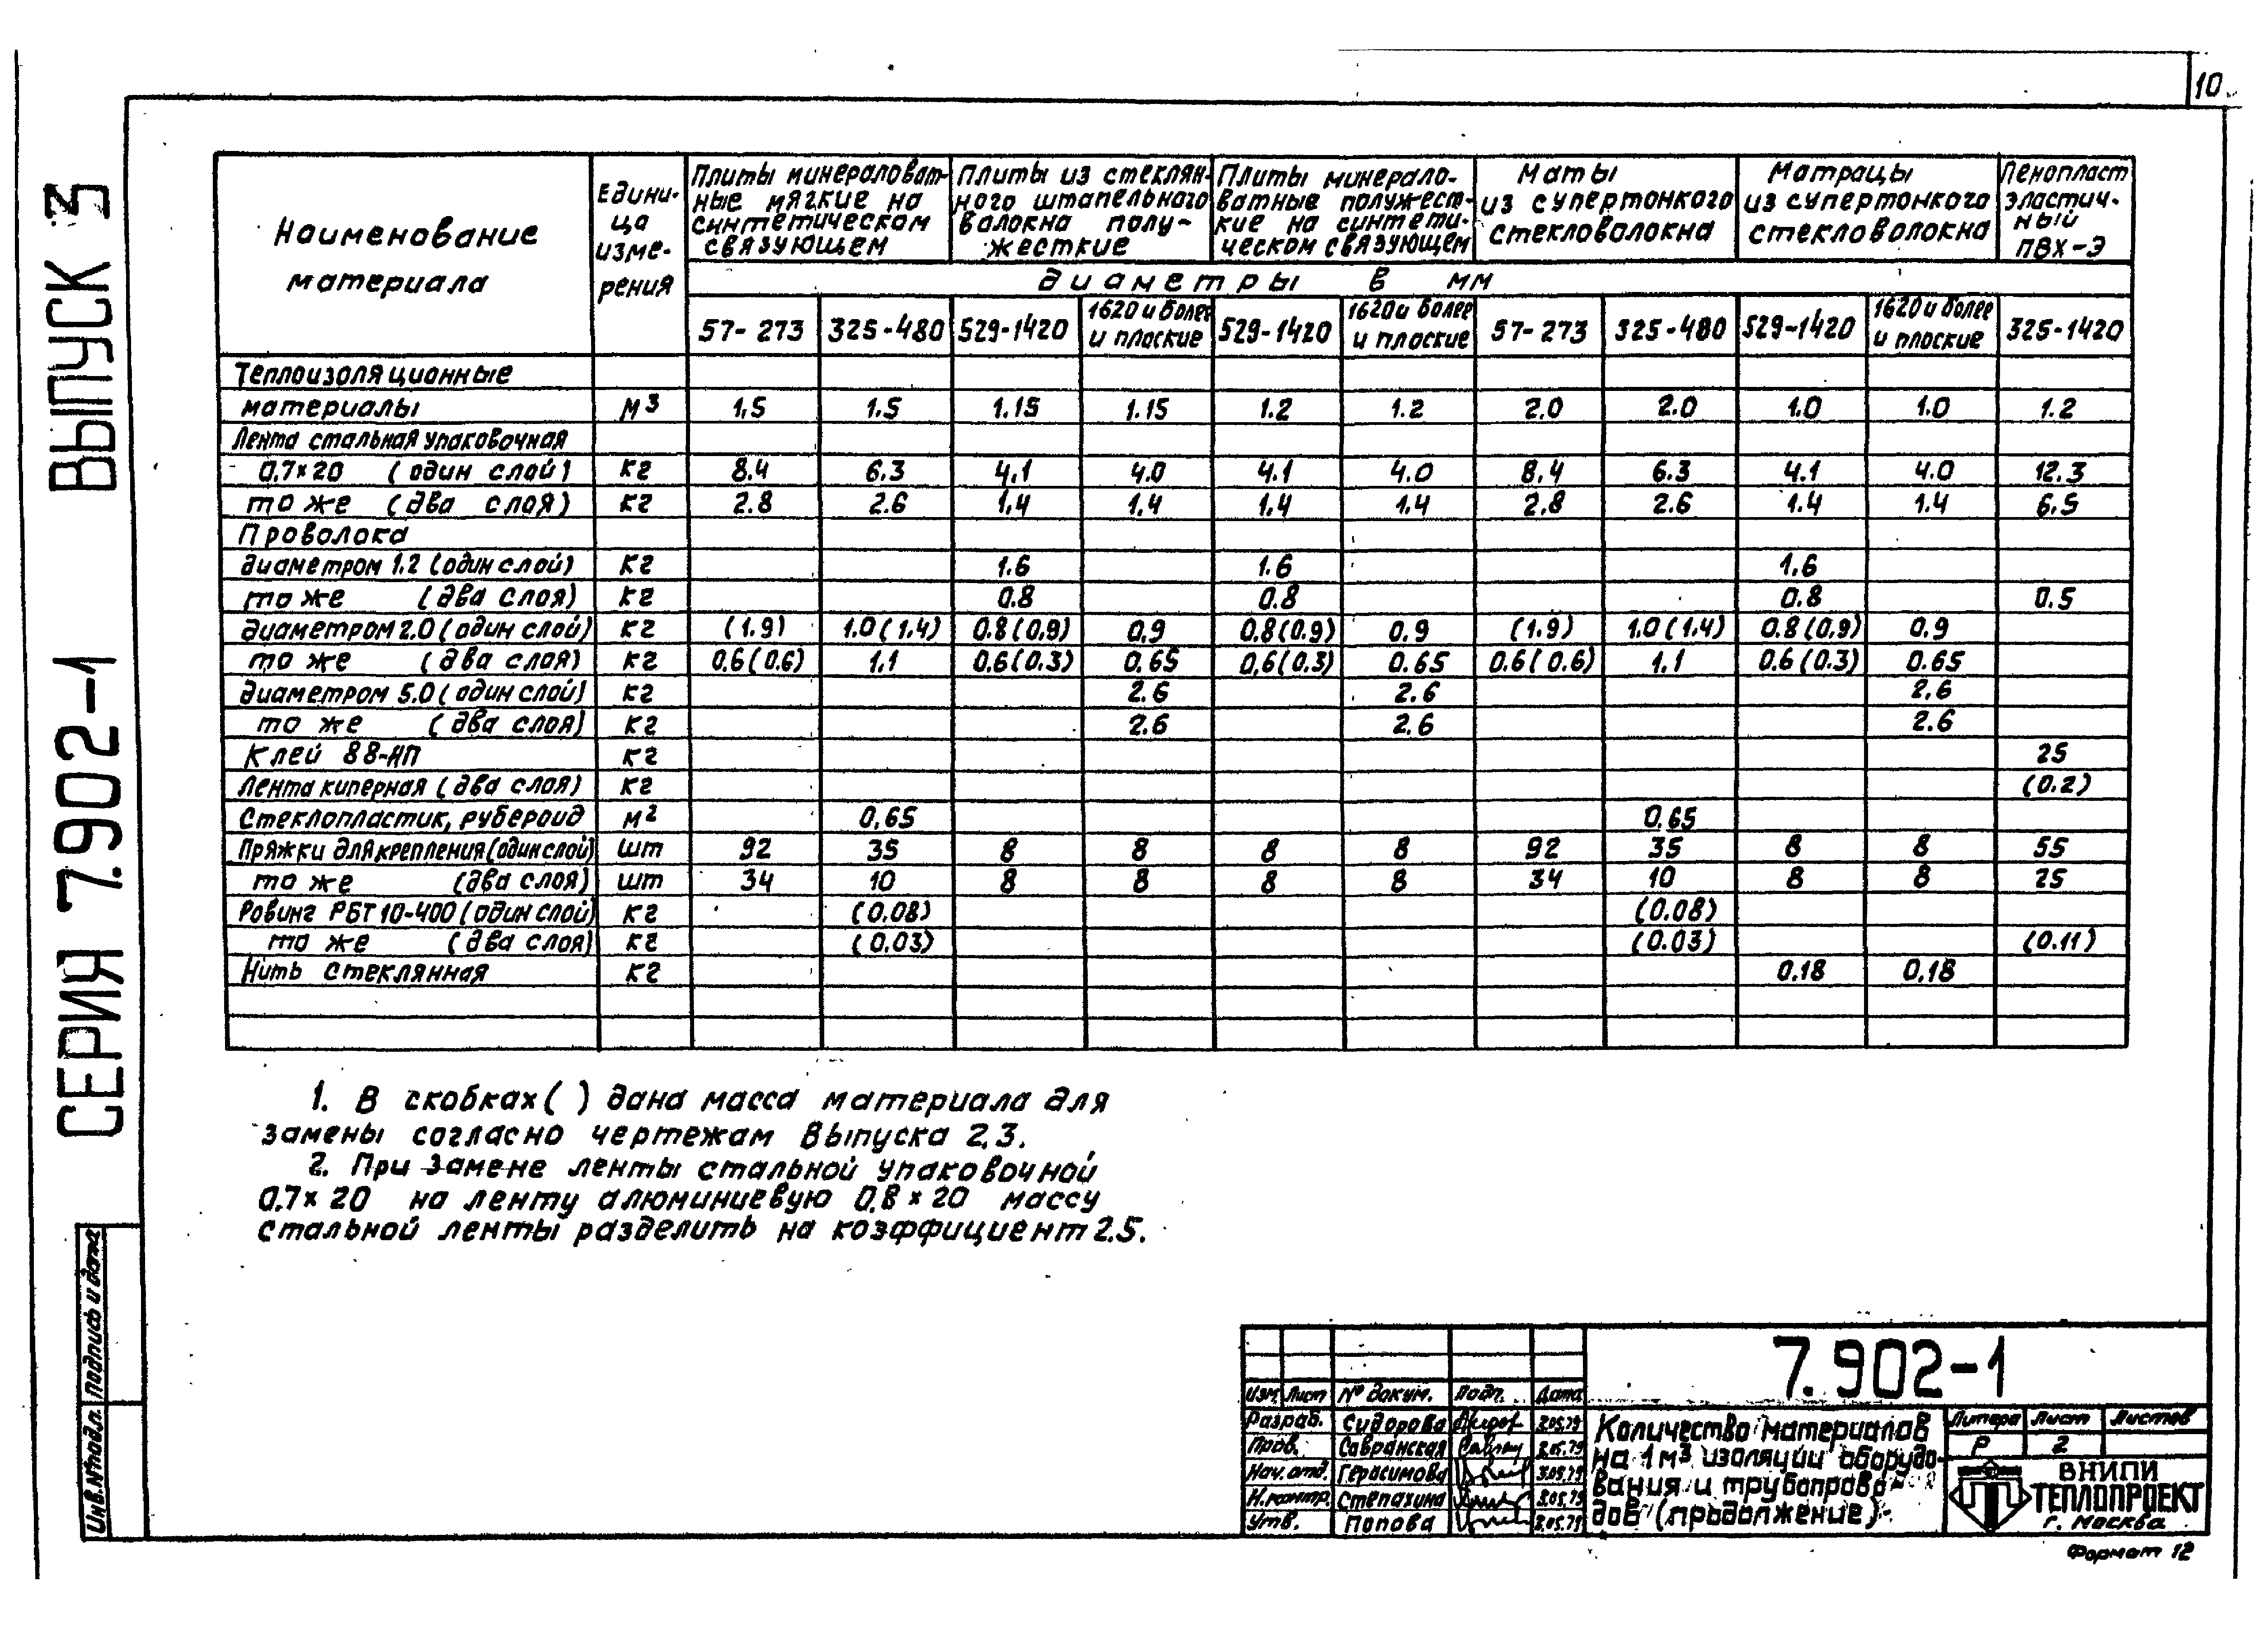 10
СЕРИЯ 7.902-1 ВЫПУСК 3
Наименование материала
Едини-
ца
изме-
рения
Плиты минераловат-
ные мягкие на
синтетическом
связующем
Плиты из стеклян-
ного штапельного
волокна полу-
жесткие
Плиты минерало-
ватные полужест-
кие на синтети-
ческом связующем
Маты
из супертонкого
стекловолокна
Матрацы
из супертонкого
стекловолокна
Пенопласт
эластич-
ный
ПВХ-Э
диаметры в мм
57-273 325-480 529-1420 1620 и более и плоские 529-1420 1620 и более и плоские 57-273 325-480 529-1420 1620 и более и плоские 325-1420
Теплоизоляционные
материалы м3 1,5 1.5 1.15 1.15 1.2 1.2 2.0 2.0 1.0 1.0 1.2
Лента стальная упаковочная
0,7×20 (один слой) кг 8.4 6.3 4.1 4.0 4.1 4.0 8.4 6.3 4.1 4.0 12.3
то же (два слоя) кг 2.8 2.6 1.4 1.4 1.4 1.4 2.8 2.6 1.4 1.4 6.5
Проволока
диаметром 1.2 (один слой) кг 1.6 1.6 1.6
то же (два слоя) кг 0.8 0.8 0.8 0.5
диаметром 2.0 (один слой) кг (1.9) 1.0(1.4) 0.8(0.9) 0,9 0.8(0.9) 0.9 (1.9) 1.0(1.4) 0.8(0,9) 0.9
то же (два слоя) кг 0.6(0.6) 1.1 0.6(0.3) 0.65 0,6(0.3) 0.65 0.6(0.6) 1.1 0.6(0.3) 0.65
диаметром 5.0 (один слой) кг 2.6 2.6 2.6
то же (два слоя) кг 2.6 2.6 2.6
Клей 88-НП кг 25
Лента киперная (два слоя) кг (0.2)
Стеклопластик, рубероид м2 0,65 0.65
Пряжки для крепления (один слой) шт 92 35 8 8 8 8 92 35 8 8 55
то же (два слоя) шт 34 10 8 8 8 8 34 10 8 8 25
Ровинг РБТ 10-400 (один слой) кг (0.08) (0.08)
то же (два слоя) кг (0.03) (0.03) (0.11)
Нить стеклянная кг 0.18 0.18
1. В скобках ( ) дана масса материала для
замены согласно чертежам выпуска 2,3.
2. При замене ленты стальной упаковочной
0.7×20 на ленту алюминиевую 0.8×20 массу
стальной ленты разделить на коэффициент 2.5.
Инв.№подл. Подпись и дата
7.902-1
Изм Лист № докум. Подп. Дата
Разраб. Сидорова 3.05.79
Пров. Савранская 3.05.79
Нач.отд. Герасимова 3.05.79
Н.контр. Степахина 3.05.79
Утв. Попова 3.05.79
Количество материалов
на 1м3 изоляции оборудо-
вания и трубопрово-
дов (продолжение)
Литера Лист Листов
Р 2
ВНИПИ
ТЕПЛОПРОЕКТ
г. Москва
Формат 12